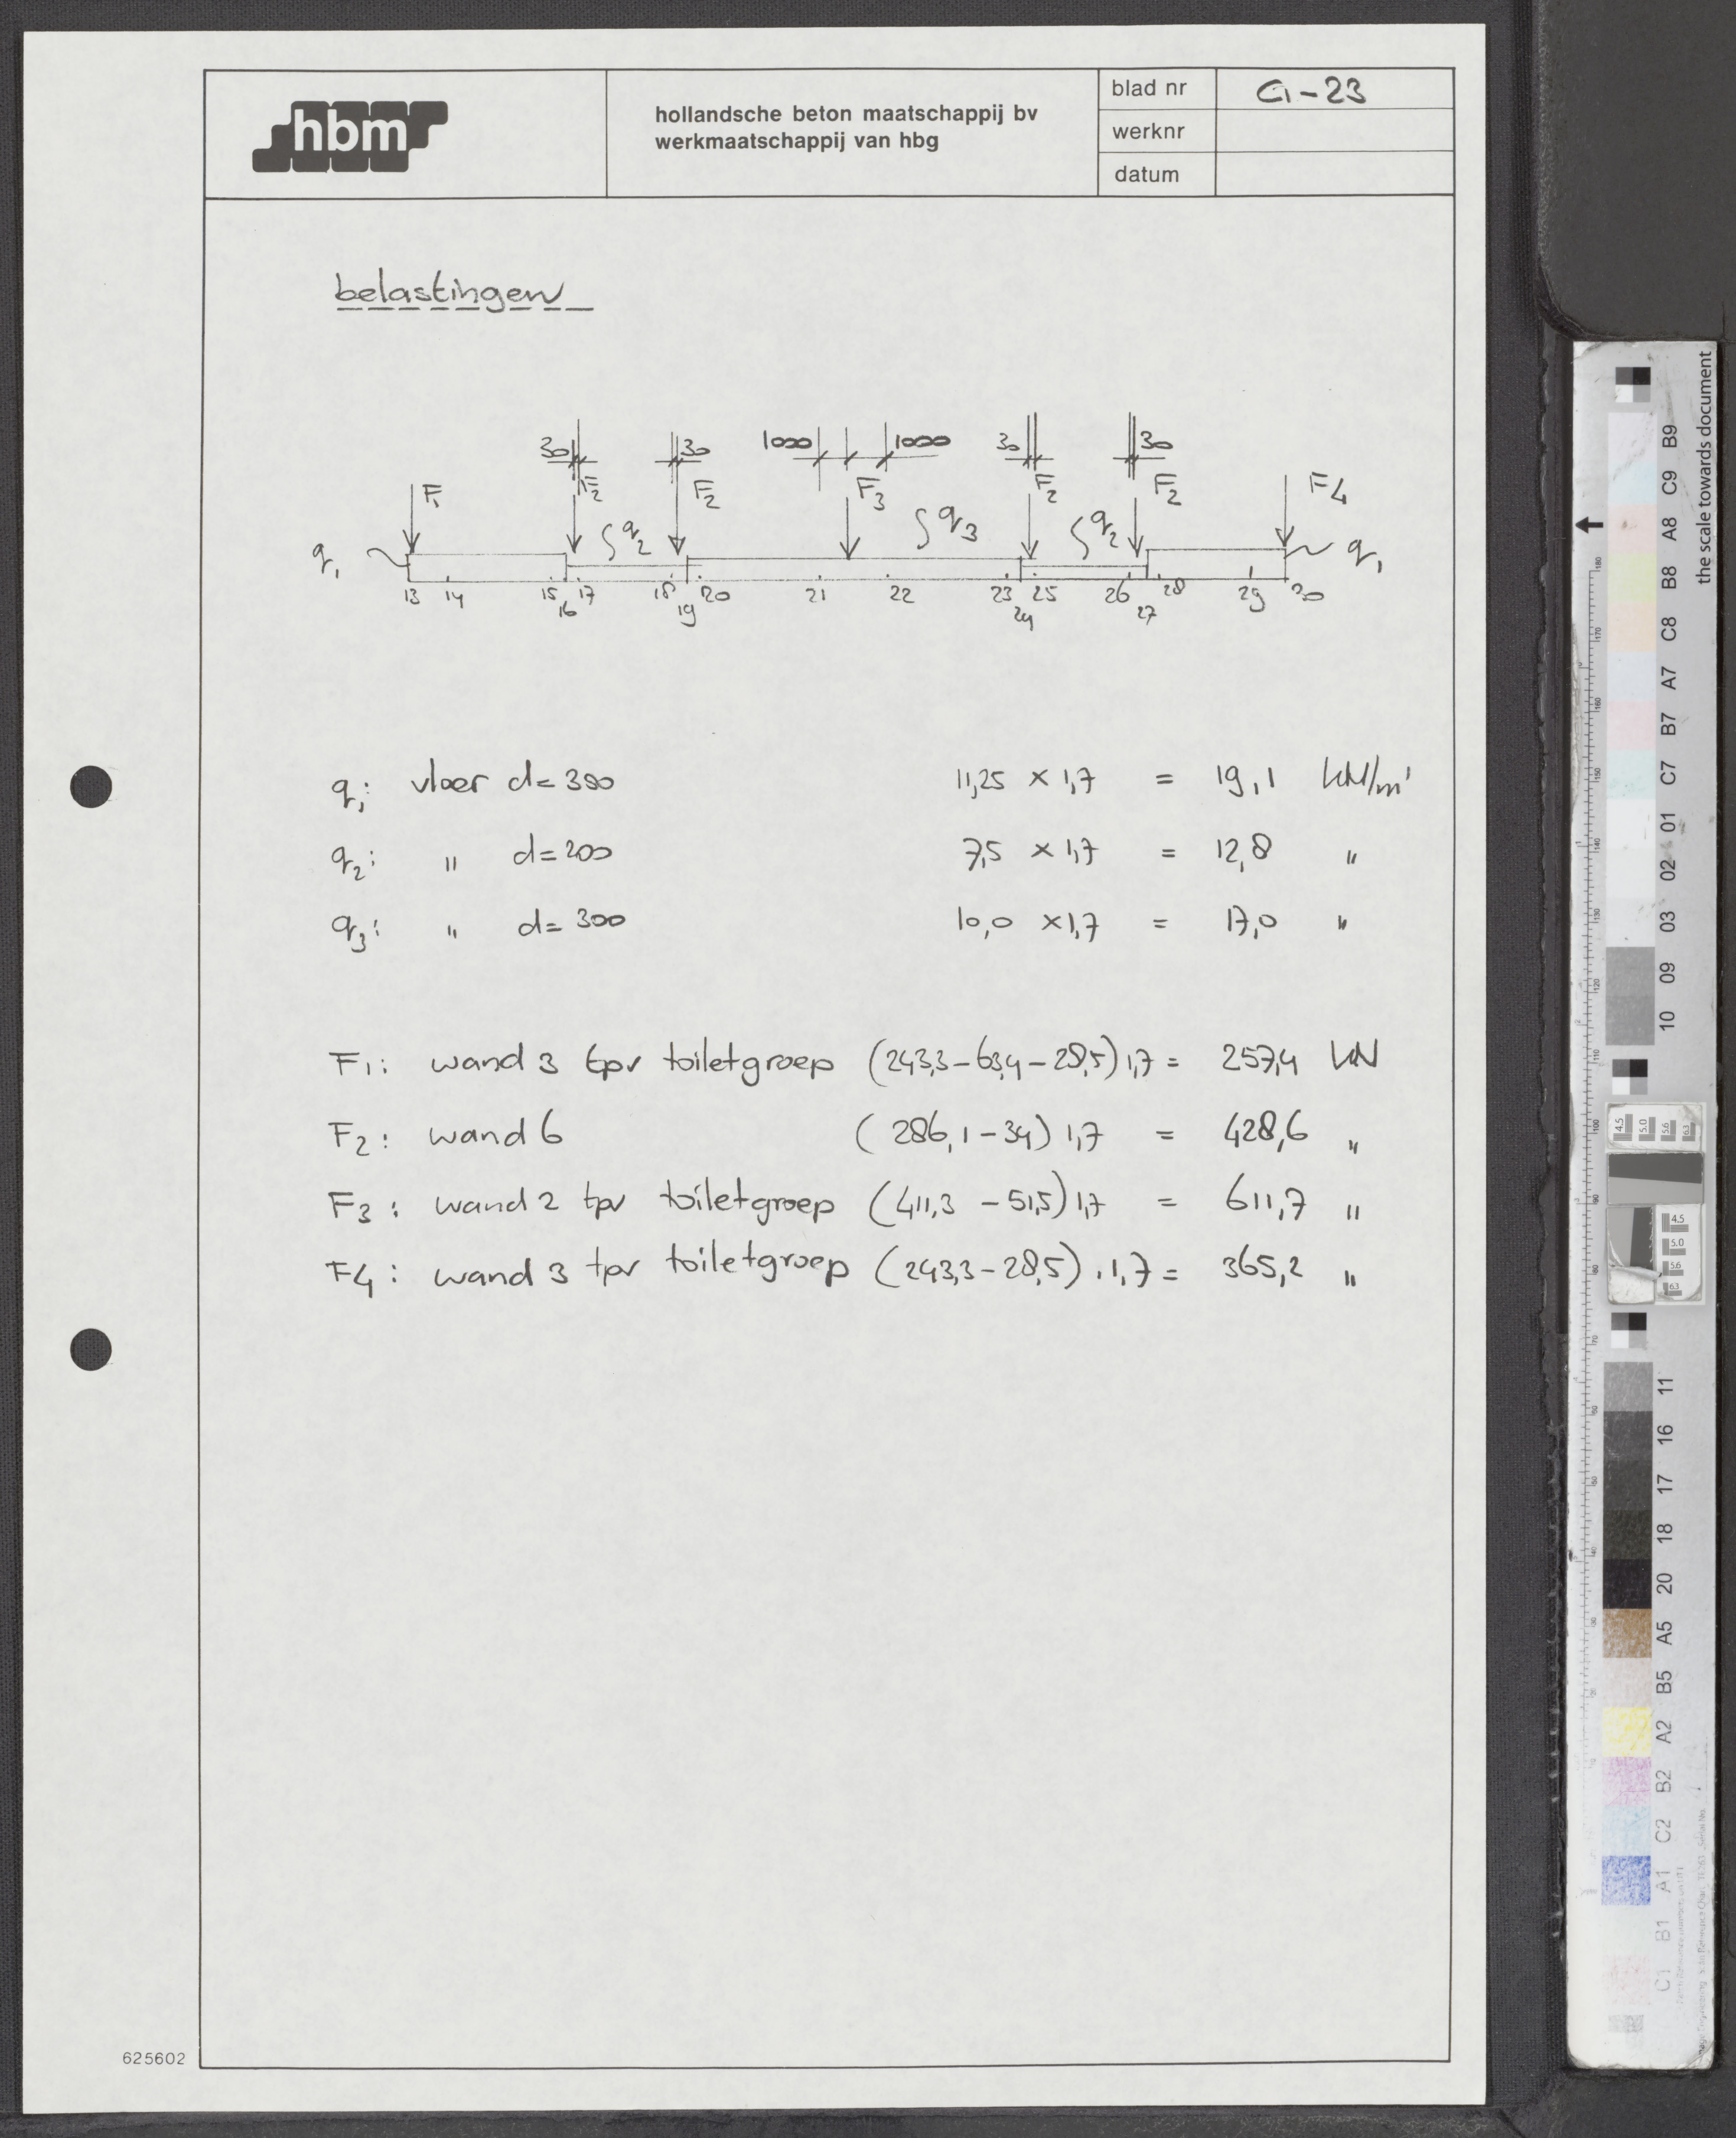 hbm
hollandsche beton maatschappij bv
werkmaatschappij van hbg
blad nr G-23
werknr
datum
belastingen
30 30 1000 1000 30 30
F1 F2 F2 F3 F2 F2 F4
q1 q2 q3 q2 q1
13 14 15 16 17 18 19 20 21 22 23 24 25 26 27 28 29 30
q1: vloer d=350 11,25 x 1,7 = 19,1 kN/m'
q2: " d=200 7,5 x 1,7 = 12,8 "
q3: " d=300 10,0 x 1,7 = 17,0 "
F1: wand 3 tpv toiletgroep (243,3-63,4-28,5) 1,7 = 257,4 kN
F2: wand 6 (286,1-34) 1,7 = 428,6 "
F3: wand 2 tpv toiletgroep (411,3-51,5) 1,7 = 611,7 "
F4: wand 3 tpv toiletgroep (243,3-28,5) . 1,7 = 365,2 "
625602
the scale towards document
B9 C9 A8 B8 C8 A7 B7 C7 01 02 03 09 10
11 16 17 18 20 A5 B5 A2 B2 C2 A1 B1 C1